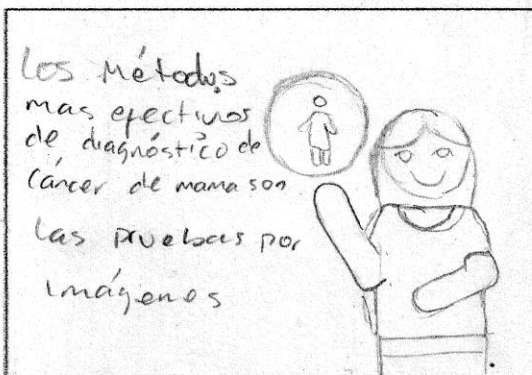 Los Métodos
mas efectivos
de diagnóstico de
Cáncer de mama son
Las pruebas por
imágenes